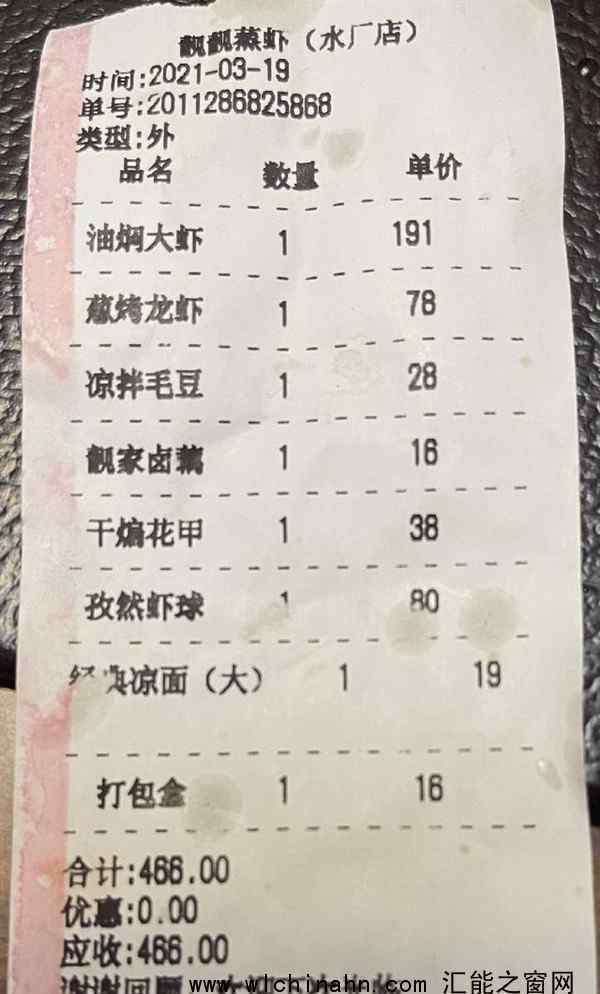 靓靓蒸虾（水厂店）
时间:2021-03-19
单号:2011286825868
类型:外
品名 数量 单价
油焖大虾 1 191
葱烤龙虾 1 78
凉拌毛豆 1 28
靓家卤藕 1 16
干煸花甲 1 38
孜然虾球 1 80
经典凉面（大） 1 19
打包盒 1 16
合计:466.00
优惠:0.00
应收:466.00
谢谢回顾
www.wlchinahn.com 汇能之窗网